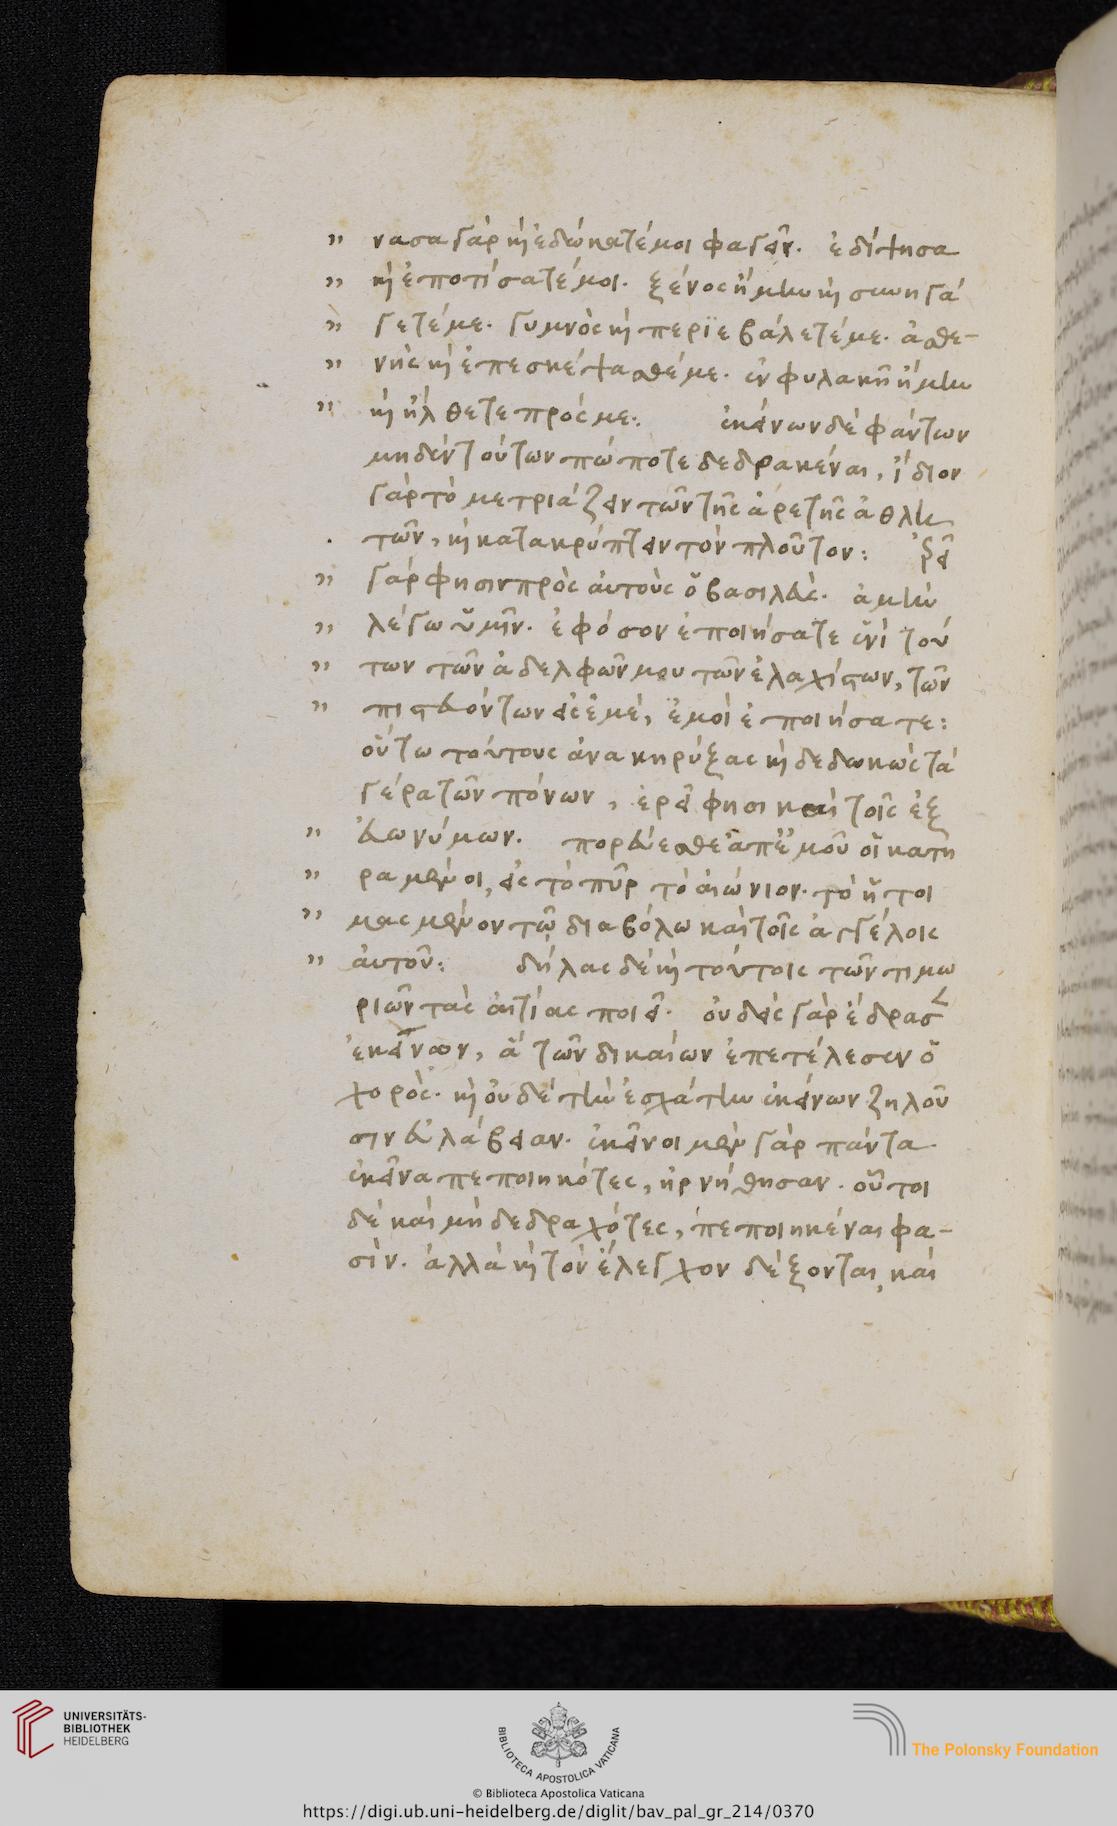 " νασα γὰρ καὶ ἐδώκατέ μοι φαγεῖν. ἐδίψησα
" καὶ ἐποτίσατέ μοι. ξένος ἤμην καὶ συνηγά
" γετέ με. γυμνὸς καὶ περϊεβάλετέ με. ἀσθε-
" νὴς καὶ ἐπεσκέψασθέ με. ἐν φυλακῇ ἤμην
" καὶ ἤλθετε πρός με: ἐκείνων δὲ φάντων
μηδὲν τούτων πώποτε δεδρακέναι, ἴδιον
γὰρ τὸ μετριάζειν τῶν τῆς ἀρετῆς ἀθλη
τῶν, καὶ κατακρύπτειν τὸν πλοῦτον: Ἐρεῖ
" γάρ φησιν πρὸς αὐτοὺς ὁ βασιλεύς. ἀμὴν
" λέγω ὑμῖν. ἐφόσον ἐποιήσατε ἑνὶ τού
" των τῶν ἀδελφῶν μου τῶν ἐλαχίστων, τῶν
" πιστευόντων εἰς ἐμέ, ἐμοὶ ἐποιήσατε:
οὕτω τούτους ἀνακηρύξας καὶ δεδωκὼς τὰ
γέρα τῶν πόνων, ἐρεῖ φησι καὶ τοῖς ἐξ
" εὐωνύμων. πορεύεσθε ἀπ' ἐμοῦ οἱ κατη
" ραμένοι, εἰς τὸ πῦρ τὸ αἰώνιον. τὸ ἡτοι
" μασμένον τῷ διαβόλω καὶ τοῖς ἀγγέλοις
" αὐτοῦ: δήλας δὲ καὶ τούτοις τῶν τιμω
ριῶν τὰς αἰτίας ποιεῖ. οὐδεὶς γὰρ ἔδρασεν
ἐκείνων, ἃ τῶν δικαίων ἐπετέλεσεν ὁ
χορός. καὶ οὐδὲ τὴν ἐσχάτην ἐκείνων ζηλοῦ
σιν εὐλάβειαν. ἐκεῖνοι μὲν γὰρ πάντα
ἐκεῖνα πεποιηκότες, ἠρνήθησαν. οὗτοι
δὲ καὶ μὴ δεδραχότες, πεποιηκέναι φα-
σίν. ἀλλὰ καὶ τὸν ἔλεγχον δέξονται, καὶ
UNIVERSITÄTS-
BIBLIOTHEK
HEIDELBERG
BIBLIOTECA APOSTOLICA VATICANA
The Polonsky Foundation
© Biblioteca Apostolica Vaticana
https://digi.ub.uni-heidelberg.de/diglit/bav_pal_gr_214/0370